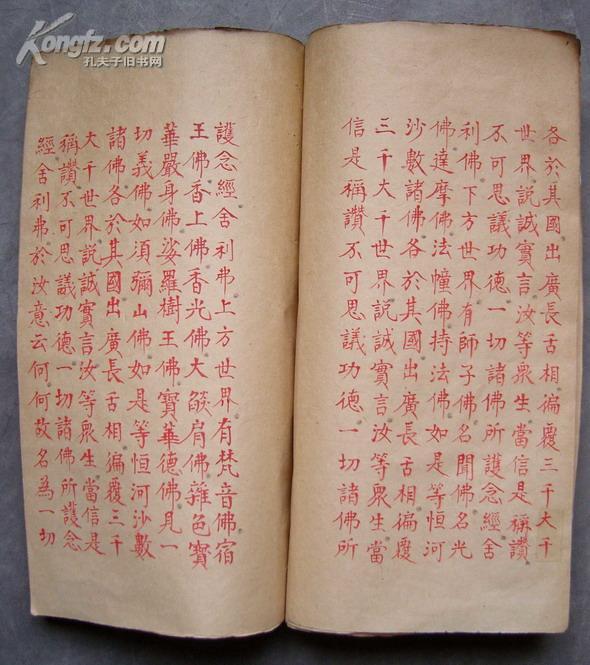 Kongfz.com
孔夫子旧书网
各於其國出廣長舌相徧覆三千大千
世界說誠實言汝等衆生當信是稱讚
不可思議功德一切諸佛所護念經舍
利佛下方世界有師子佛名聞佛名光
佛達摩佛法幢佛持法佛如是等恒河
沙數諸佛各於其國出廣長舌相徧覆
三千大千世界說誠實言汝等衆生當
信是稱讚不可思議功德一切諸佛所
護念經舍利弗上方世界有梵音佛宿
王佛香上佛香光佛大燄肩佛雜色寶
華嚴身佛娑羅樹王佛寶華德佛見一
切義佛如須彌山佛如是等恒河沙數
諸佛各於其國出廣長舌相徧覆三千
大千世界說誠實言汝等衆生當信是
稱讚不可思議功德一切諸佛所護念
經舍利弗於汝意云何何故名為一切